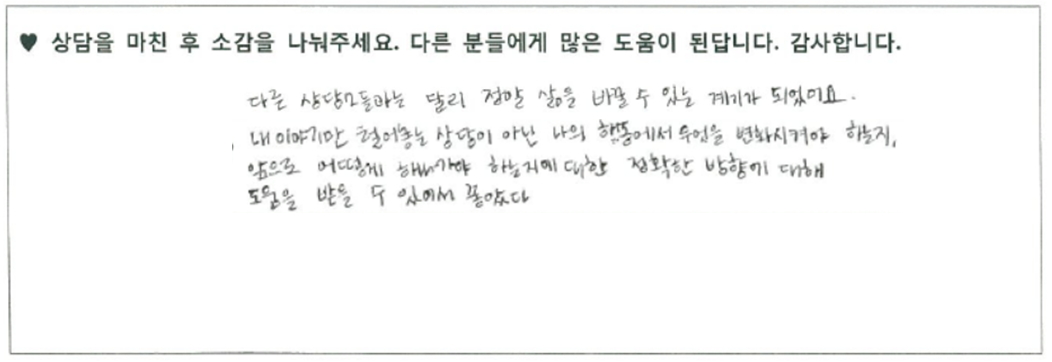 ♥ 상담을 마친 후 소감을 나눠주세요. 다른 분들에게 많은 도움이 된답니다. 감사합니다.
다른 상담소들과는 달리 정말 삶을 바꿀 수 있는 계기가 되었어요.
내 이야기만 털어놓는 상담이 아닌 나의 행동에서 무엇을 변화시켜야 하는지,
앞으로 어떻게 해나가야 하는지에 대한 정확한 방향에 대해
도움을 받을 수 있어서 좋았다